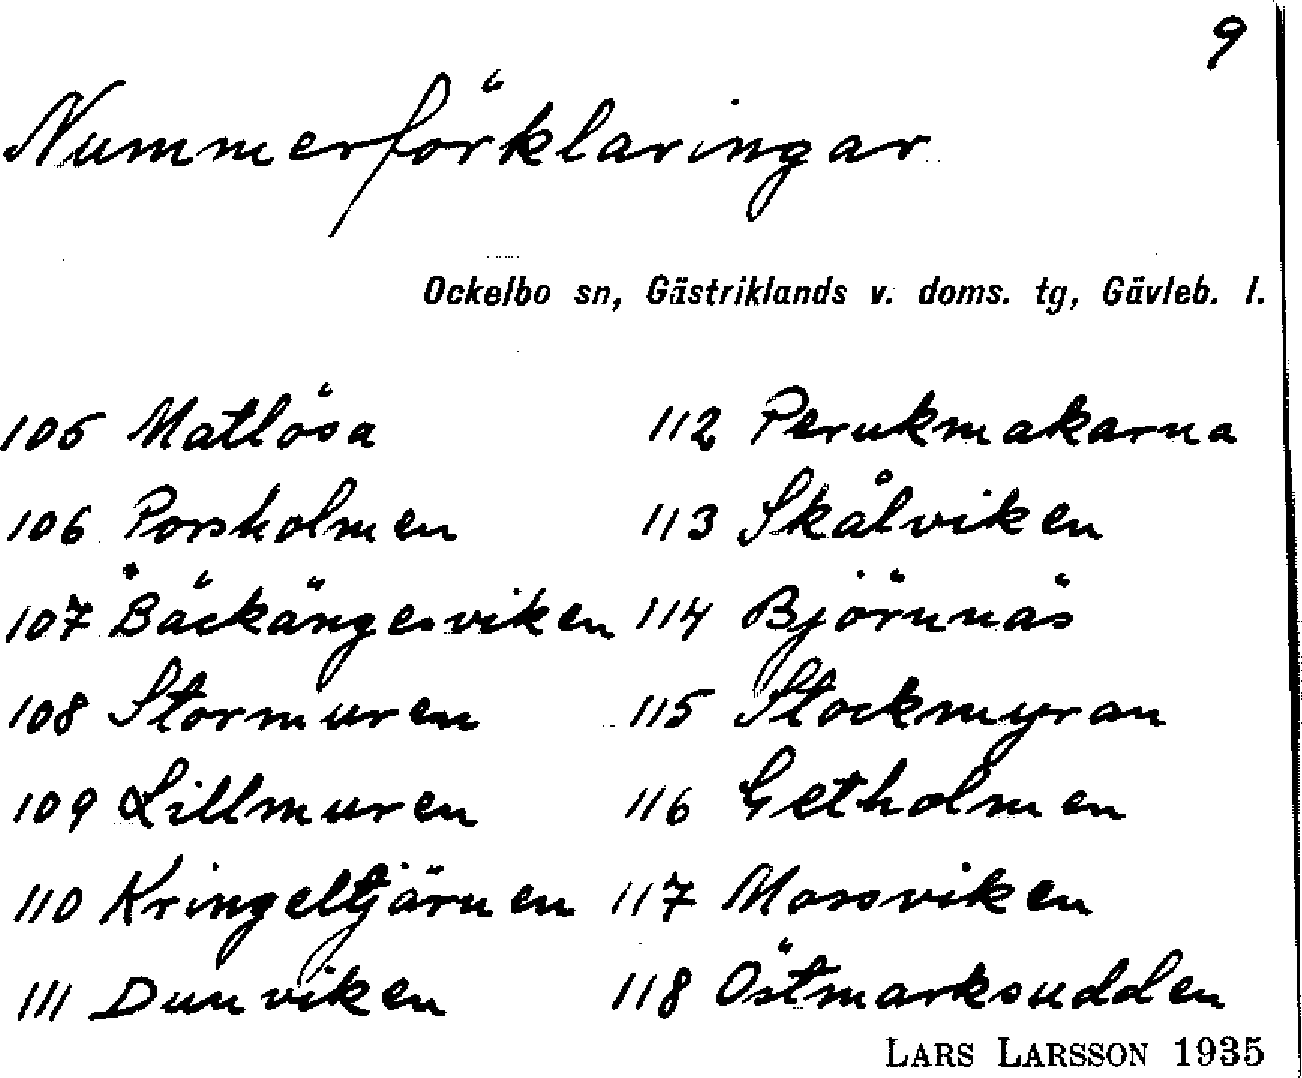 9
Nummerförklaringar
Ockelbo sn, Gästriklands v. doms. tg, Gävleb. l.
105 Matlösa
106 Porsholmen
107 Bäckängesviken
108 Stormuren
109 Lillmuren
110 Kringeltjärnen
111 Dunviken
112 Perukmakarna
113 Skålviken
114 Björnnäs
115 Stockmyran
116 Getholmen
117 Mossviken
118 Östmarksudden
LARS LARSSON 1935